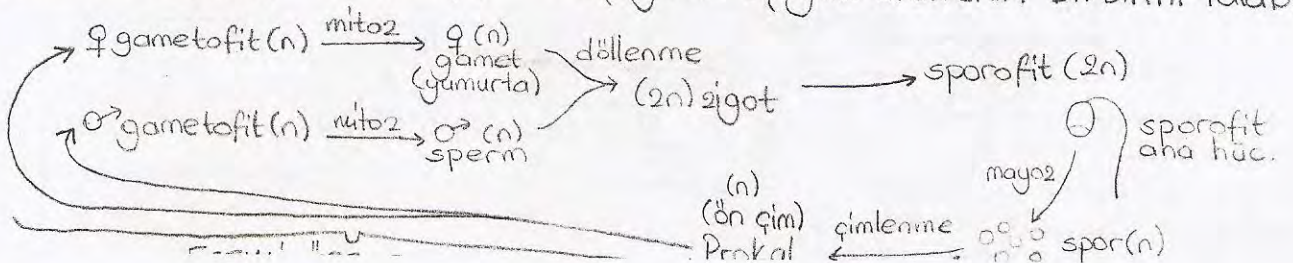 ♀ gametofit (n) mitoz ♀ (n) gamet (yumurta)
döllenme
(2n) zigot
sporofit (2n)
♂ gametofit (n) mitoz ♂ (n) sperm
sporofit
ana hüc.
mayoz
spor (n)
çimlenme
(n)
(ön çim)